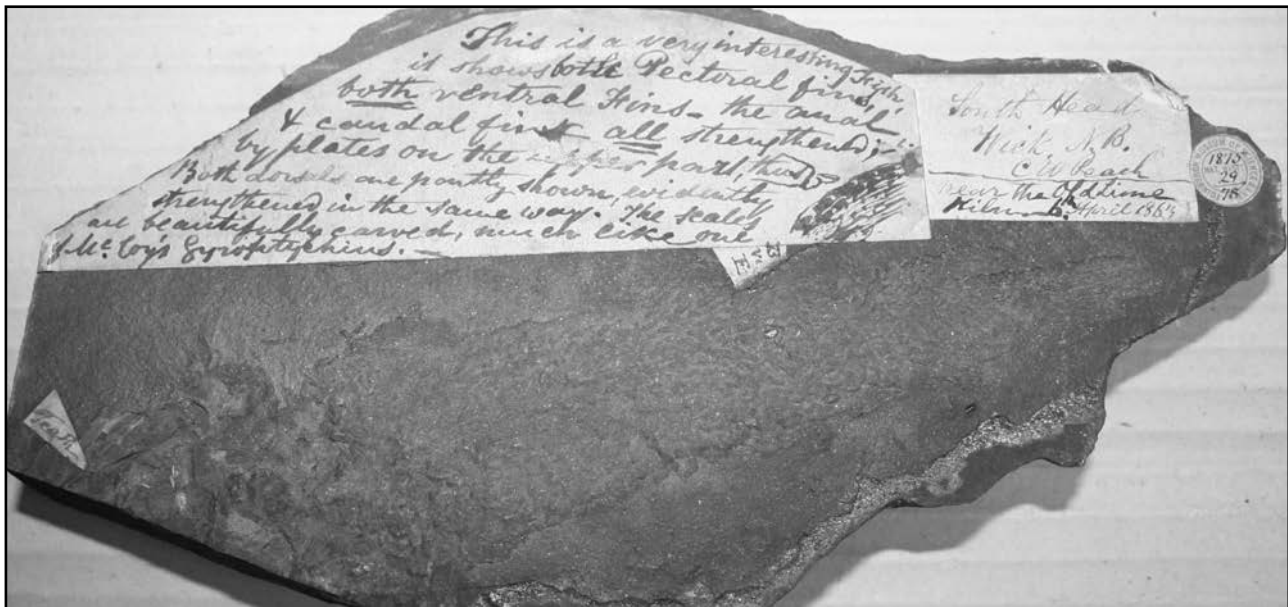 This is a very interesting Fish
it shows both Pectoral fins,
both ventral Fins - the anal
& caudal fins all strengthened,
by plates on the upper part, thus
Both dorsals are partly shown, evidently
strengthened in the same way. The scales
are beautifully carved, much like one
of Mc Coy's Gyroptychius. —
South Head
Wick N.B.
C W Peach
near the Old Lime
Kiln April 1863
1875
29
78
Teeth